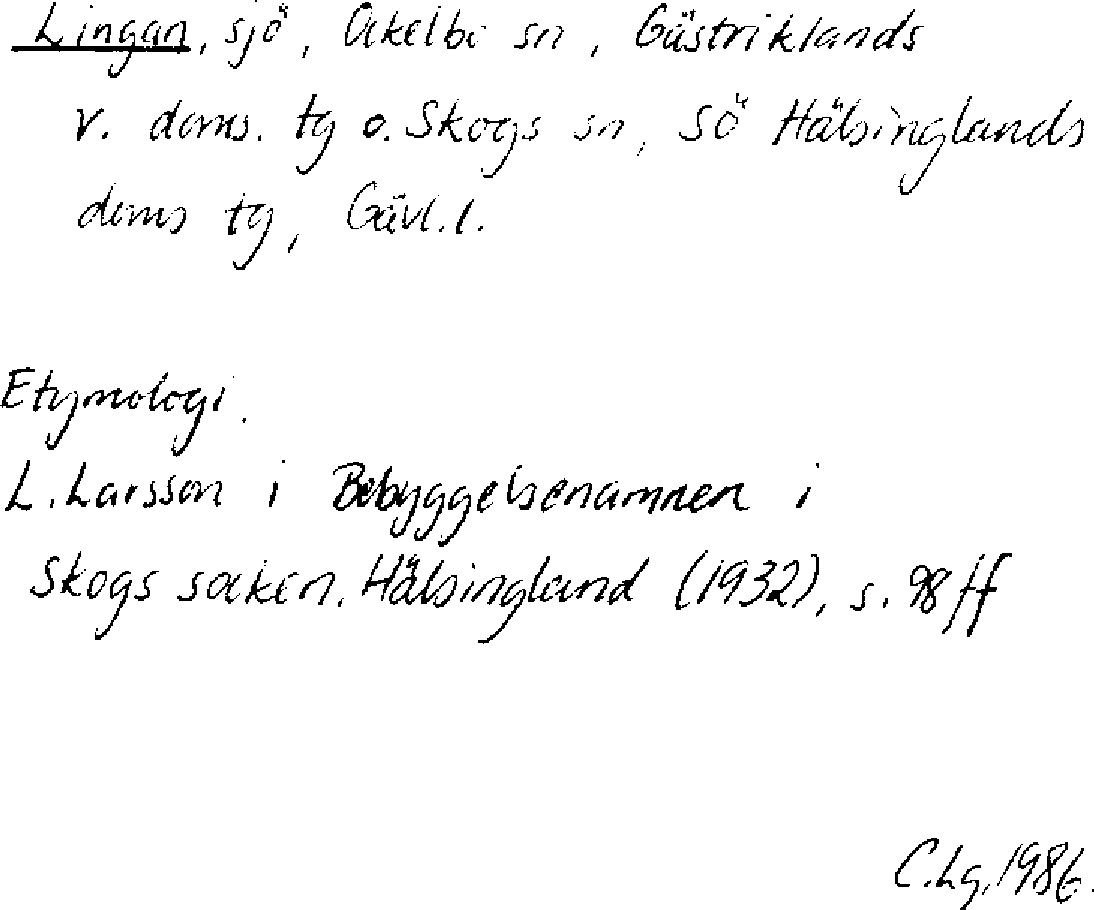 Lingan, sjö, Ockelbo sn, Gästriklands
v. doms. tg o. Skogs sn, Sö Hälsinglands
doms tg, Gävl. l.
Etymologi.
L. Larsson i Bebyggelsenamnen i
Skogs socken. Hälsingland (1932), s. 98 ff
C. Lg, 1986.